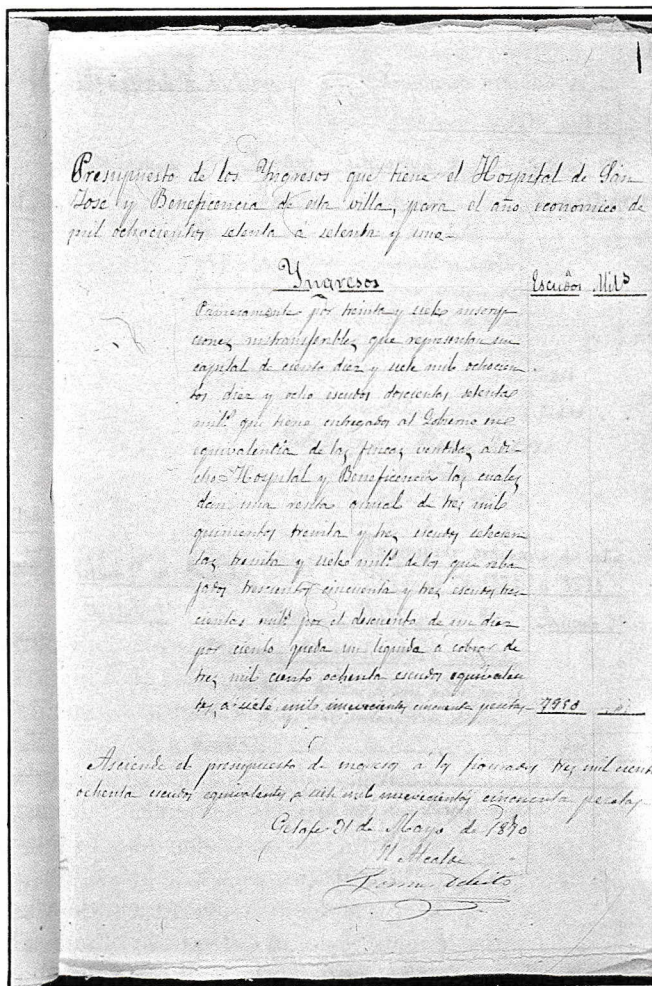 1
Presupuesto de los Yngresos que tiene el Hospital de San
Jose y Beneficencia de esta villa, para el año economico de
mil ochocientos setenta á setenta y uno
Yngresos Escudos Mils
Primeramente por treinta y siete inscrip
ciones instransferibles que representan un
capital de ciento diez y siete mil ochocien
tos diez y ocho escudos doscientas setenta
mils que tiene entregados al Gobierno en
equivalencia de las fincas vendidas á di
cho Hospital y Beneficencia las cuales
dan una renta anual de tres mil
quinientos treinta y tres escudos setecien
tas treinta y siete mils de los que reba
jados trescientos cincuenta y tres escudos tres
cientas mils por el descuento de un diez
por ciento queda un liquido á cobrar de
tres mil ciento ochenta escudos equivalen
tes á siete mil novecientas cincuenta pesetas 7950
Asciende el presupuesto de ingresos á los figurados tres mil ciento
ochenta escudos equivalentes a siete mil novecientas cincuenta pesetas
Getafe 31 de Mayo de 1870
El Alcalde